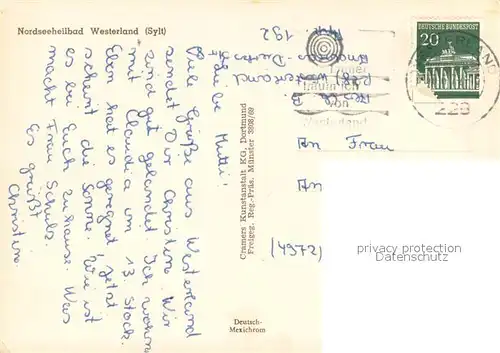 Nordseeheilbad Westerland (Sylt)
Liebe Mutti!
Viele Grüße aus Westerland
sendet Dir Christine. Wir
sind gut gelandet. Ich wohne
mit Claudia im 13. Stock.
Eben hat es geregnet, jetzt
scheint die Sonne. Wie ist
es bei Euch zuhause. Was
macht Frau Schulz.
Es grüßt
Christine.
Cramers Kunstanstalt KG, Dortmund
Freigeg. Reg.-Präs. Münster 3898/69
Deutsch-
Mexichrom
DEUTSCHE BUNDESPOST
20
228
von
Westerland
192
An Frau
An
(4972)
privacy protection
Datenschutz